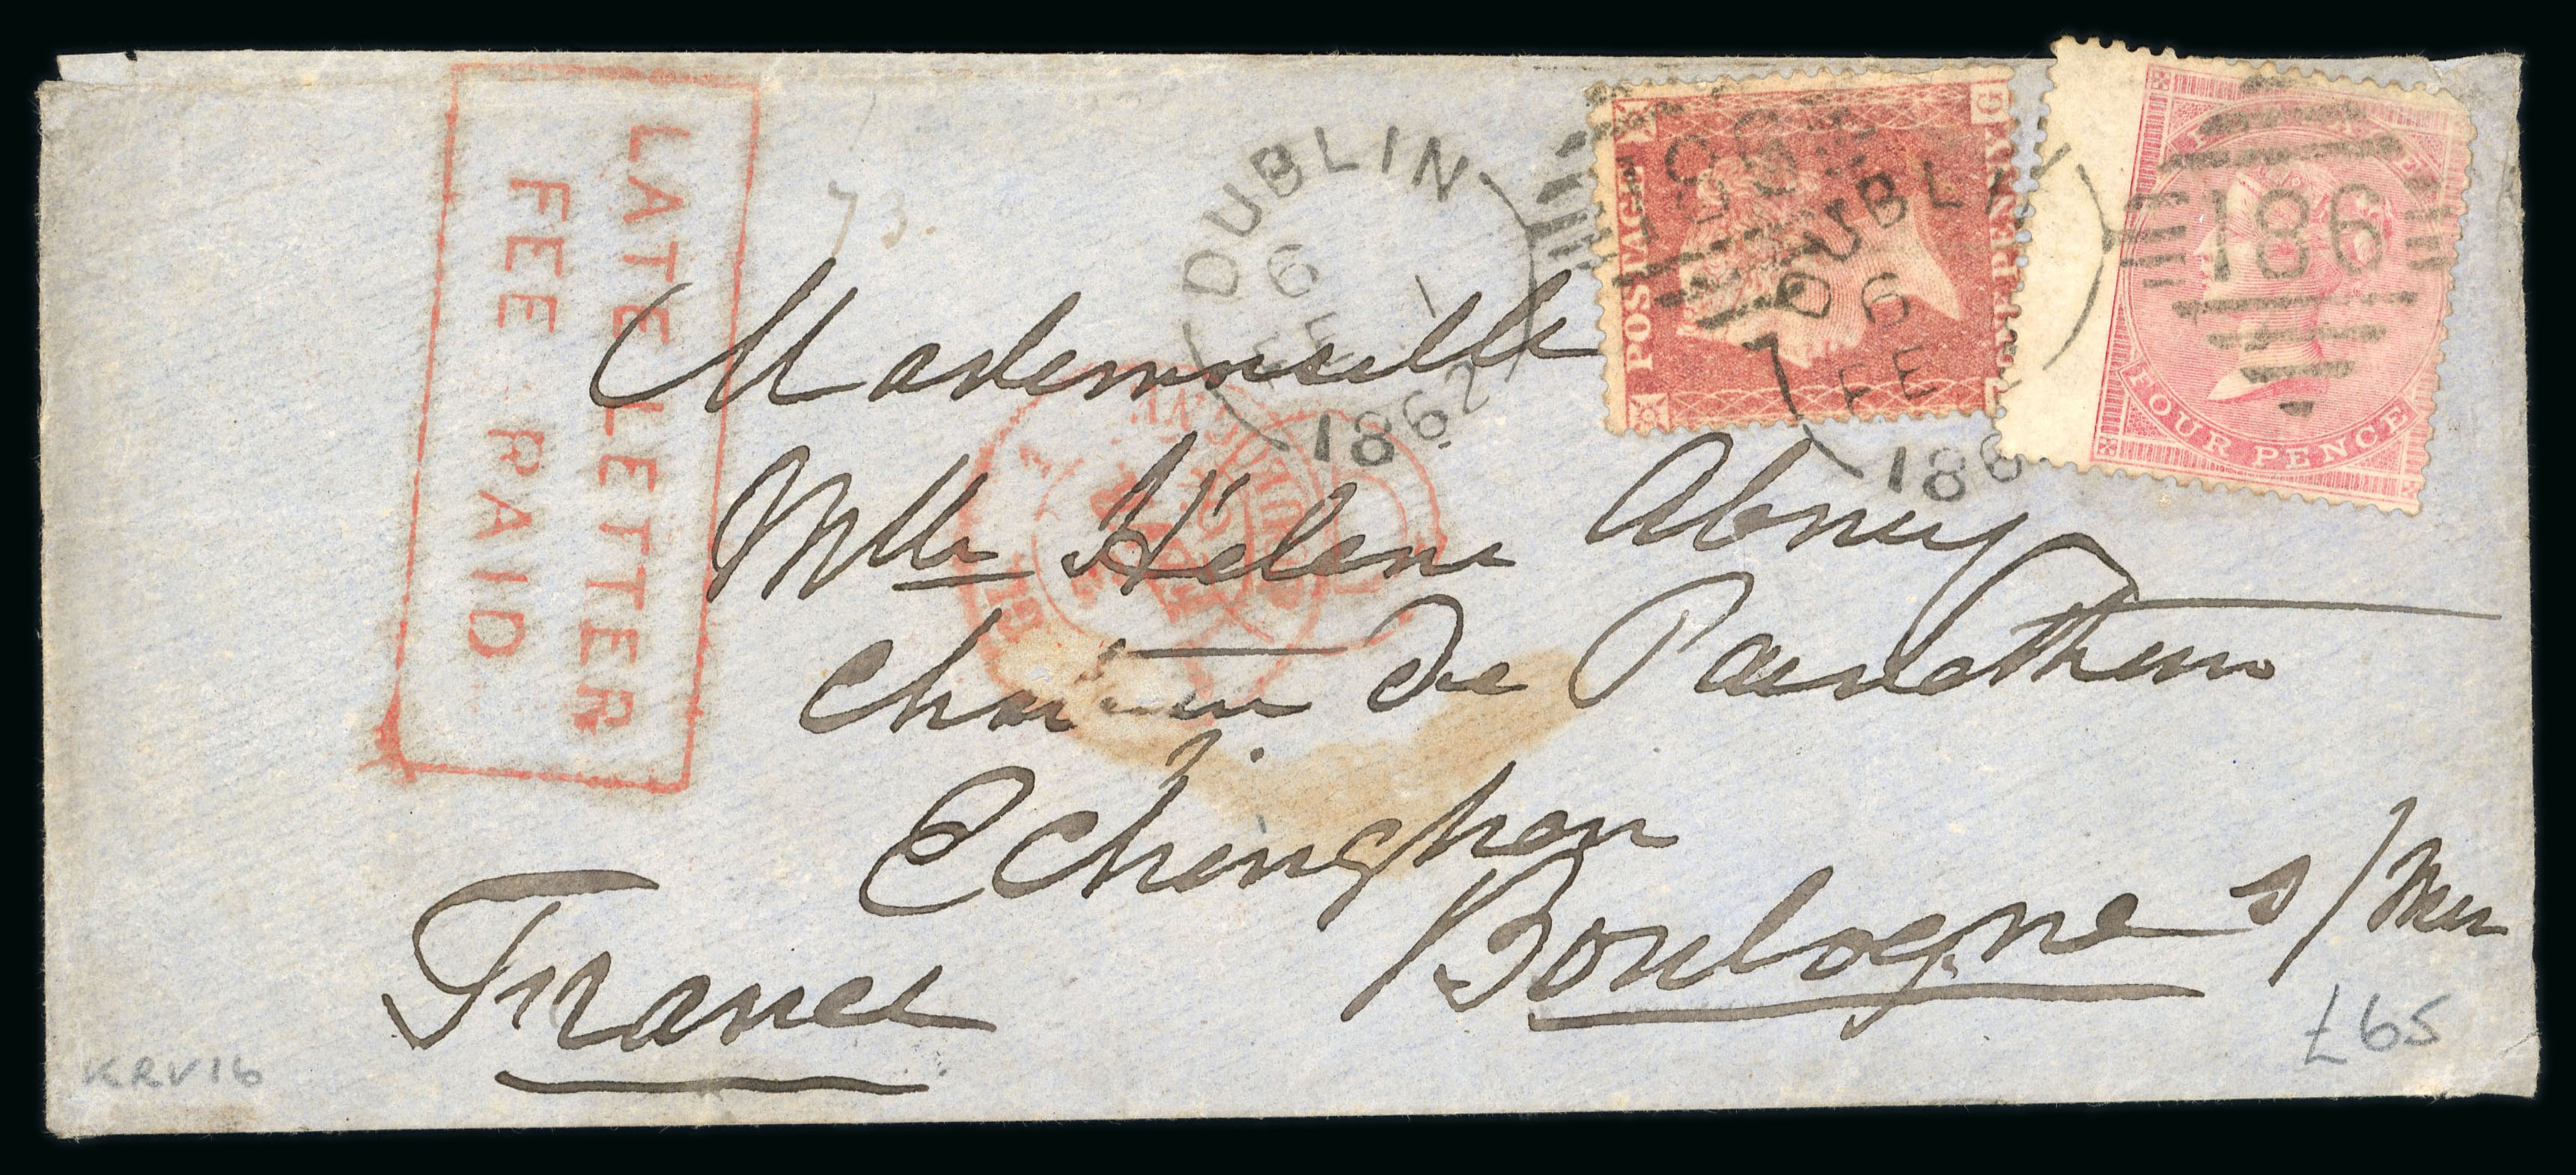 LATE LETTER
FEE PAID
73.
DUBLIN
6
FE 1
1862
186
DUBLIN
6
FE
186
POSTAGE
PENNY
G
186
FOUR PENCE
Mademoiselle
Mlle Hélène Abney
de
Echinghen
Boulogne s/Mer
France
£65
KRV16